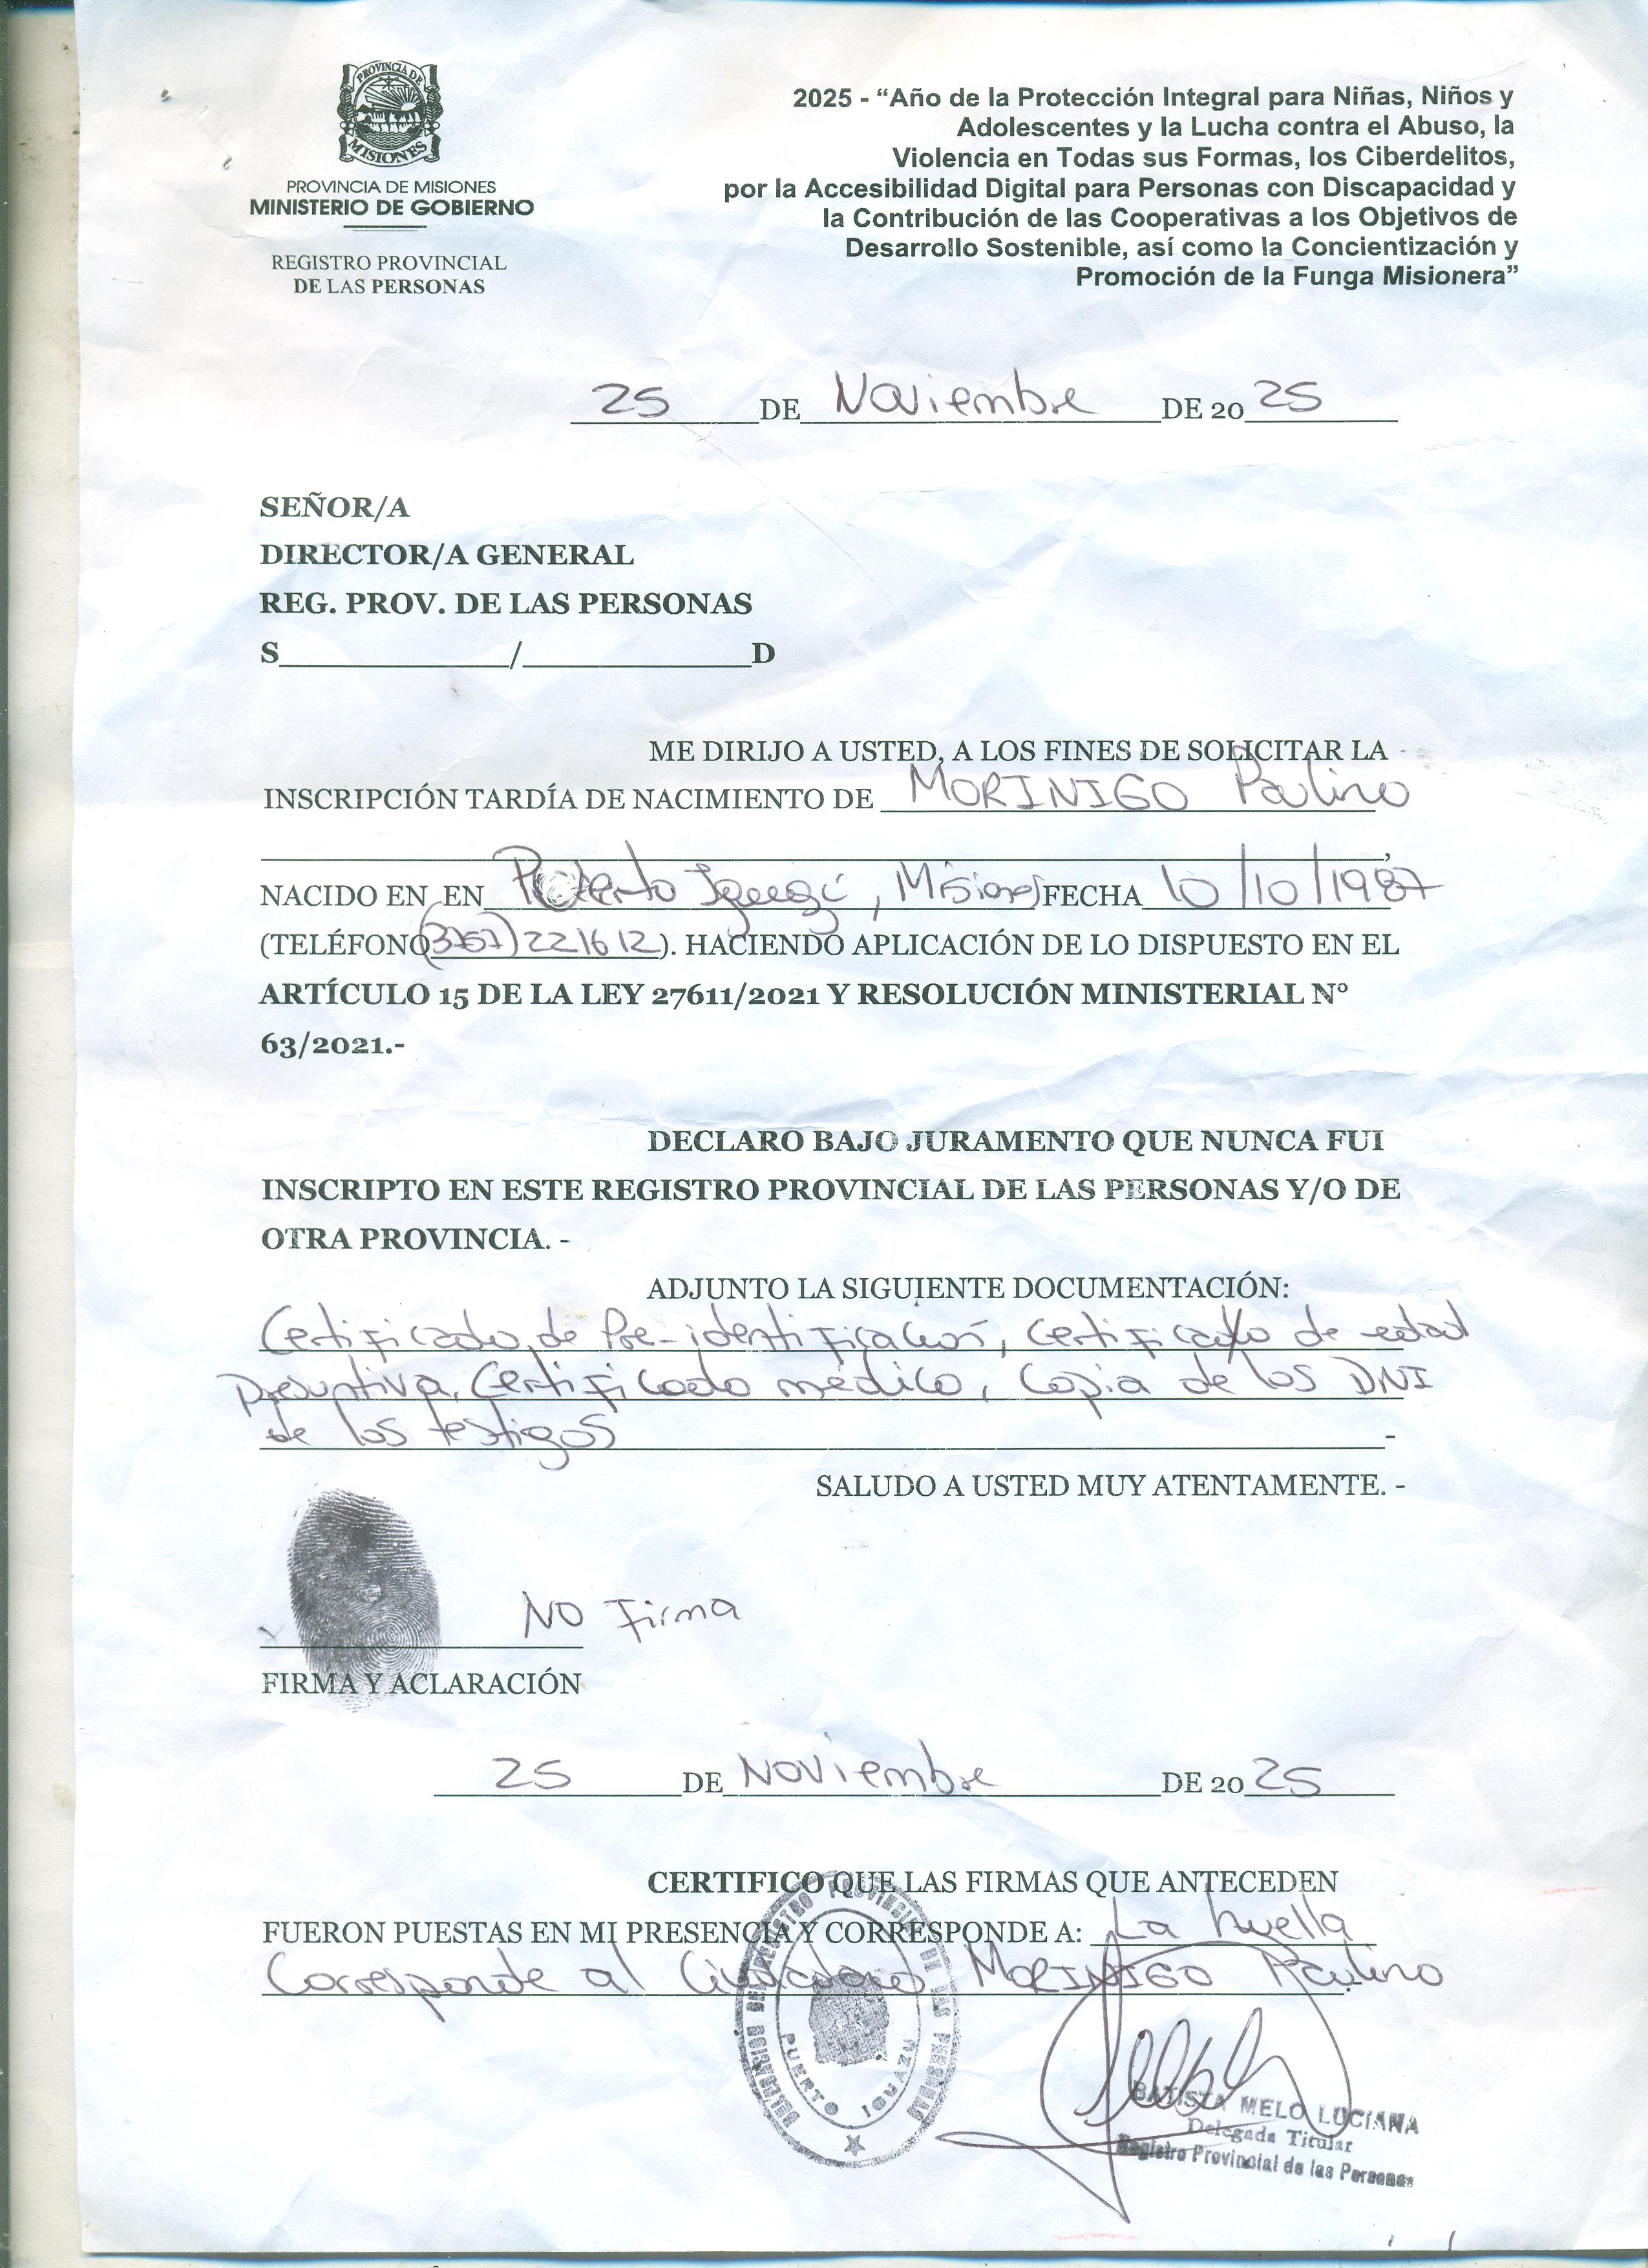 PROVINCIA DE
MISIONES
PROVINCIA DE MISIONES
MINISTERIO DE GOBIERNO
REGISTRO PROVINCIAL
DE LAS PERSONAS
2025 - “Año de la Protección Integral para Niñas, Niños y
Adolescentes y la Lucha contra el Abuso, la
Violencia en Todas sus Formas, los Ciberdelitos,
por la Accesibilidad Digital para Personas con Discapacidad y
la Contribución de las Cooperativas a los Objetivos de
Desarrollo Sostenible, así como la Concientización y
Promoción de la Funga Misionera”
25 DE Noviembre DE 20 25
SEÑOR/A
DIRECTOR/A GENERAL
REG. PROV. DE LAS PERSONAS
S____________/____________D
ME DIRIJO A USTED, A LOS FINES DE SOLICITAR LA
INSCRIPCIÓN TARDÍA DE NACIMIENTO DE MORINIGO Paulino
,
NACIDO EN EN Puerto Iguazú, Misiones FECHA 10/10/1987
(TELÉFONO (3757) 221612). HACIENDO APLICACIÓN DE LO DISPUESTO EN EL
ARTÍCULO 15 DE LA LEY 27611/2021 Y RESOLUCIÓN MINISTERIAL N°
63/2021.-
DECLARO BAJO JURAMENTO QUE NUNCA FUI
INSCRIPTO EN ESTE REGISTRO PROVINCIAL DE LAS PERSONAS Y/O DE
OTRA PROVINCIA. -
ADJUNTO LA SIGUIENTE DOCUMENTACIÓN:
Certificado de Pre-identificación, Certificado de edad
Presuntiva, Certificado médico, Copia de los DNI
de los testigos -
SALUDO A USTED MUY ATENTAMENTE. -
NO Firma
FIRMA Y ACLARACIÓN
25 DE Noviembre DE 20 25
CERTIFICO QUE LAS FIRMAS QUE ANTECEDEN
FUERON PUESTAS EN MI PRESENCIA Y CORRESPONDE A: La huella
Corresponde al Ciudadano MORINIGO Paulino.
DELEGACION DEL REGISTRO PROVINCIAL DE LAS PERSONAS
PUERTO IGUAZU
BATISTA MELO LUCIANA
Delegada Titular
Registro Provincial de las Personas